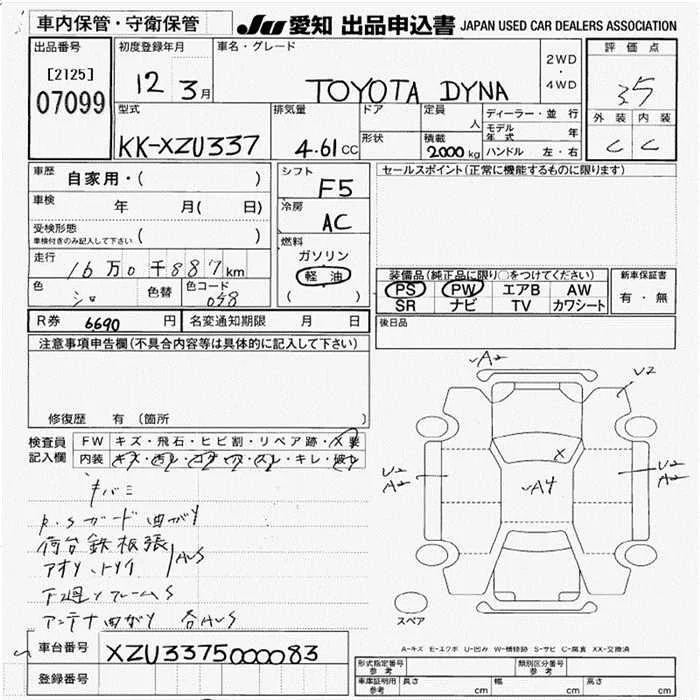 車内保管・守衛保管
JU 愛知 出品申込書 JAPAN USED CAR DEALERS ASSOCIATION
出品番号
[2125]
07099
初度登録年月
12 3月
車名・グレード
TOYOTA DYNA
2WD
・
4WD
評価点
3.5
外装 内装
C C
型式
KK-XZU337
排気量
4.61cc
ドア
形状
定員
人
積載
2000kg
ディーラー・並行
モデル年式 年
ハンドル 左・右
車歴 自家用・( )
車検 年 月( 日)
受検形態
車検付きのみ記入して下さい ( )
走行 16万0千887km
色 シロ 色替 色コード 058
シフト F5
冷房 AC
燃料
ガソリン
軽油
( )
セールスポイント(正常に機能するものに限ります)
装備品(純正品に限り○をつけてください)
PS PW エアB AW
SR ナビ TV カワシート
新車保証書
有・無
後日品
R券 6690 円
名変通知期限 月 日
注意事項申告欄(不具合内容等は具体的に記入して下さい)
修復歴 有 〔箇所 〕
検査員記入欄
FW キズ・飛石・ヒビ割・リペア跡・X要
内装 キズ・汚レ・コゲ・穴・スレ・キレ・破レ
キバミ
R.Sガード曲がり
荷台鉄板張
アオリ、トリイ AUS
下廻りフレームS
アンテナ曲がり 各AUS
A2
U2
U2
A2
U2
A2
X
A4
スペア
A-キズ E-エクボ U-凹み W-補修跡 S-サビ C-腐食 XX-交換済
車台番号 XZU3375000083
登録番号
形式指定番号
参考
類別区分番号
参考
車庫証明用
参考
長さ cm 幅 cm 高さ cm